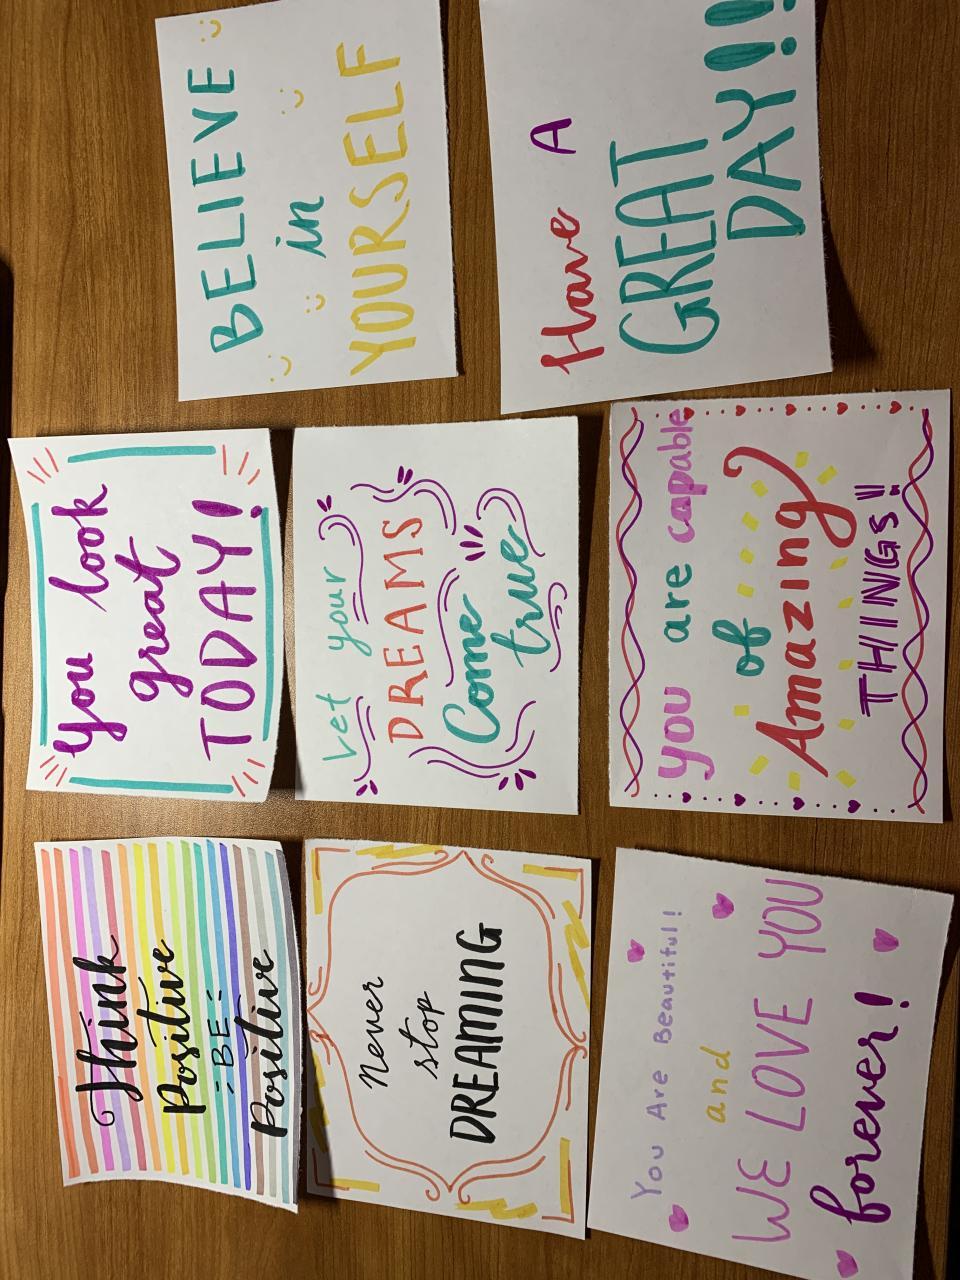 Think
Positive
BE
Positive
You look
great
TODAY!
BELIEVE
in
YOURSELF
Never
stop
DREAMING
Let your
DREAMS
Come
true
Have A
GREAT
DAY!!
You Are Beautiful!
and
WE LOVE YOU
forever!
you are capable
of
Amazing
THINGS!!